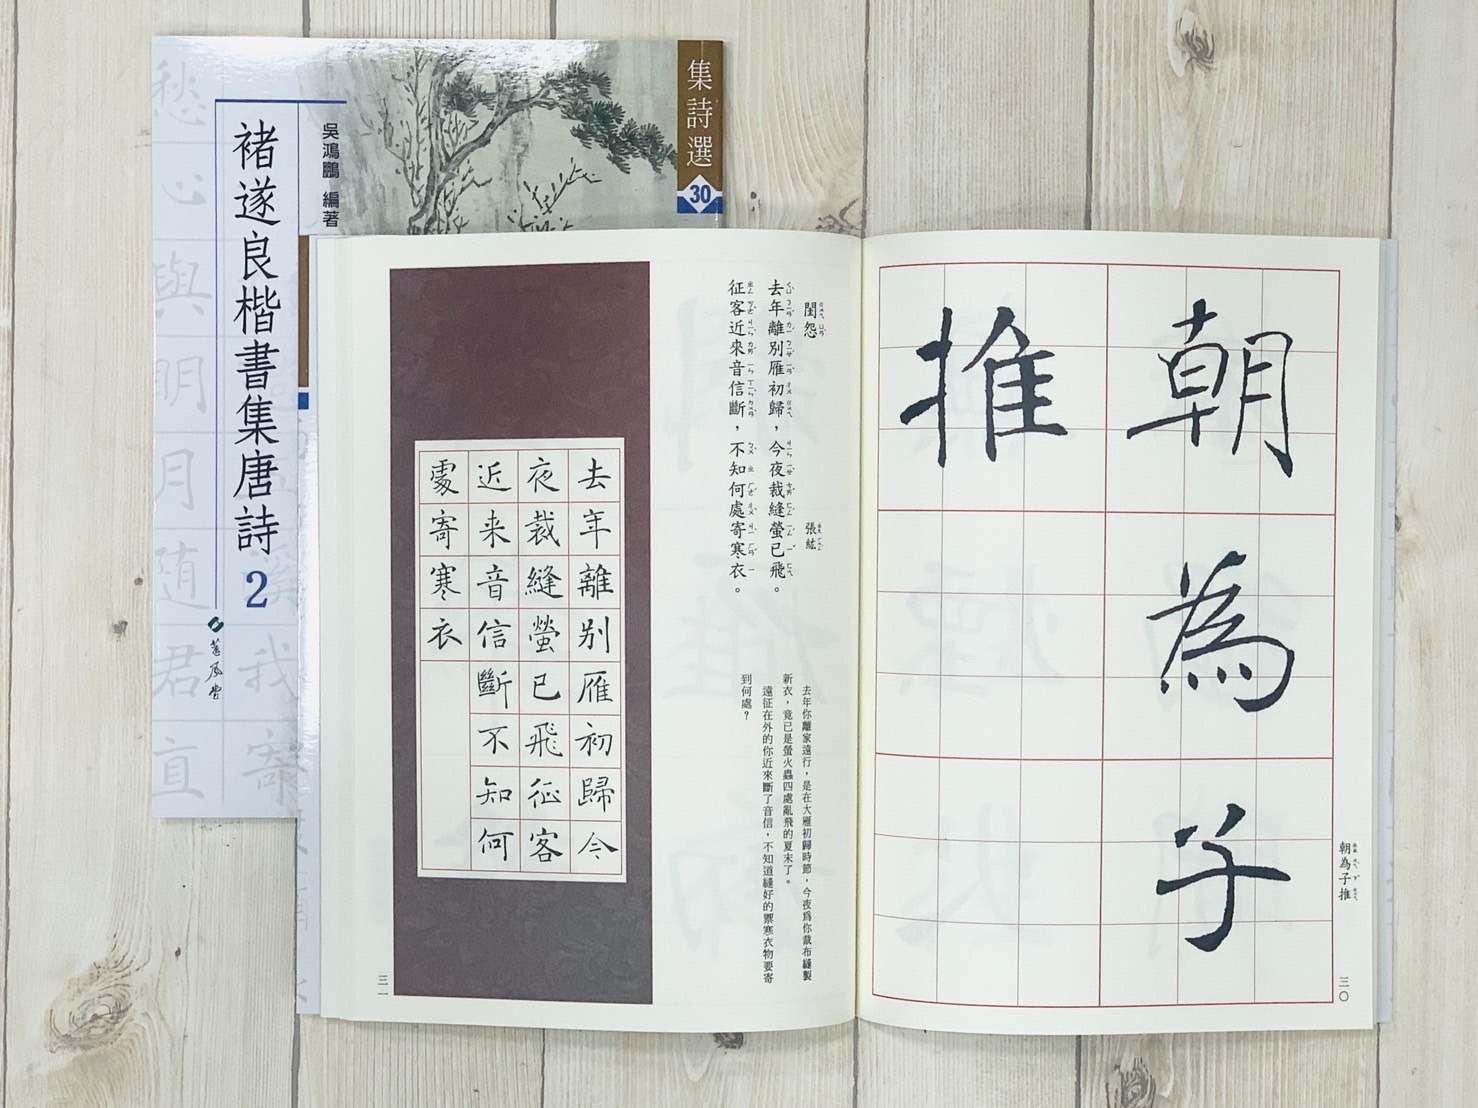 集詩選
30
吳鴻鵬 編著
褚遂良楷書集唐詩 2
蕙風堂
朝為子
推
朝為子推
三〇
閨怨
張紘
去年離別雁初歸，今夜裁縫螢已飛。
征客近來音信斷，不知何處寄寒衣。
去年你離家遠行，是在大雁初歸時節，今夜為你裁布縫製
新衣，竟已是螢火蟲四處亂飛的夏末了。
遠征在外的你近來斷了音信，不知道縫好的禦寒衣物要寄
到何處？
去年離別雁初歸今
夜裁縫螢已飛征客
近来音信斷不知何
處寄寒衣
三一
愁心與明月随君直
我寄